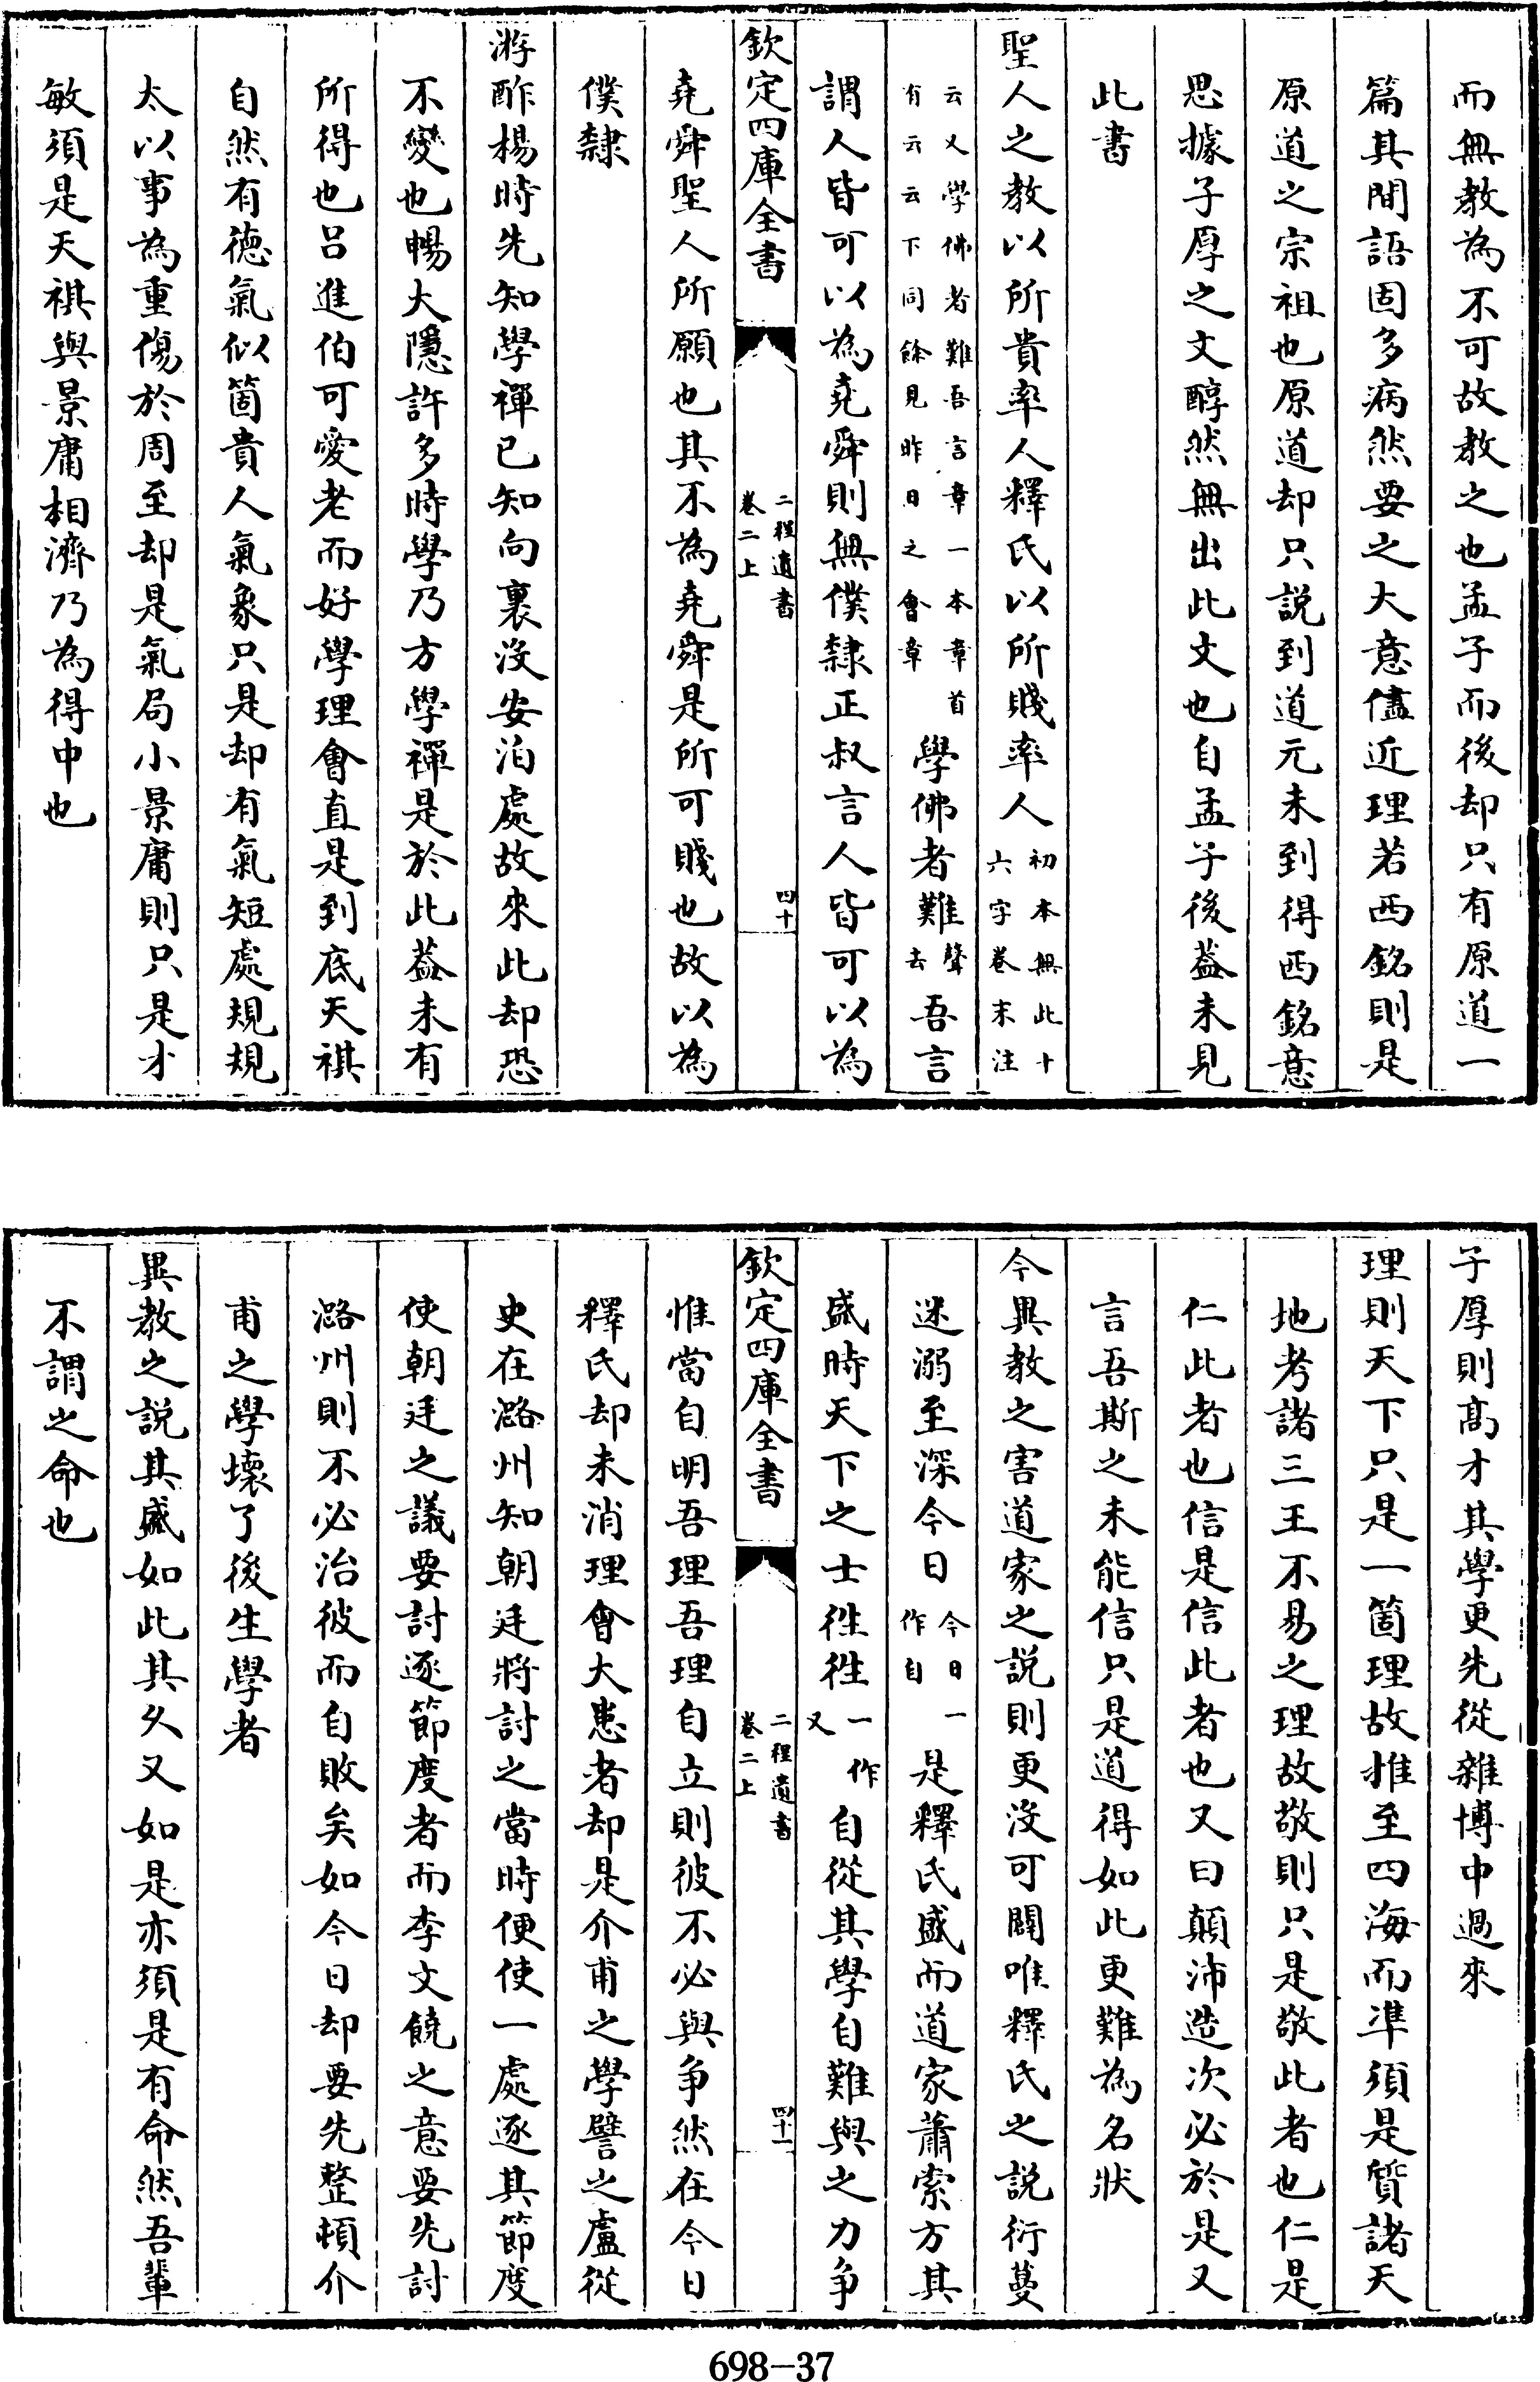 而無教為不可故教之也孟子而後却只有原道一
篇其間語固多病然要之大意儘近理若西銘則是
原道之宗祖也原道却只説到道元未到得西銘意
思據子厚之文醇然無出此文也自孟子後葢未見
此書
聖人之教以所貴率人釋氏以所賤率人初本無此十六字卷末注
云又學佛者難吾言章一本章首有云云下同餘見昨日之會章學佛者難去聲吾言
謂人皆可以為堯舜則無僕隸正叔言人皆可以為
欽定四庫全書 二程遺書卷二上 四十
堯舜聖人所願也其不為堯舜是所可賤也故以為
僕隸
游酢楊時先知學禪已知向裏沒安泊處故來此却恐
不變也暢大隱許多時學乃方學禪是於此葢未有
所得也呂進伯可愛老而好學理會直是到底天祺
自然有德氣似箇貴人氣象只是却有氣短處規規
太以事為重傷於周至却是氣局小景庸則只是才
敏須是天祺與景庸相濟乃為得中也
子厚則高才其學更先從雜博中過來
理則天下只是一箇理故推至四海而凖須是質諸天
地考諸三王不易之理故敬則只是敬此者也仁是
仁此者也信是信此者也又曰顛沛造次必於是又
言吾斯之未能信只是道得如此更難為名狀
今異教之害道家之説則更沒可闢唯釋氏之説衍蔓
迷溺至深今日今日一作自是釋氏盛而道家蕭索方其
盛時天下之士徃徃一作又自從其學自難與之力爭
欽定四庫全書 二程遺書卷二上 四十一
惟當自明吾理吾理自立則彼不必與爭然在今日
釋氏却未消理會大患者却是介甫之學譬之盧從
史在潞州知朝廷將討之當時便使一處逐其節度
使朝廷之議要討逐節度者而李文饒之意要先討
潞州則不必治彼而自敗矣如今日却要先整頓介
甫之學壞了後生學者
異教之説其盛如此其久又如是亦須是有命然吾輩
不謂之命也
698-37